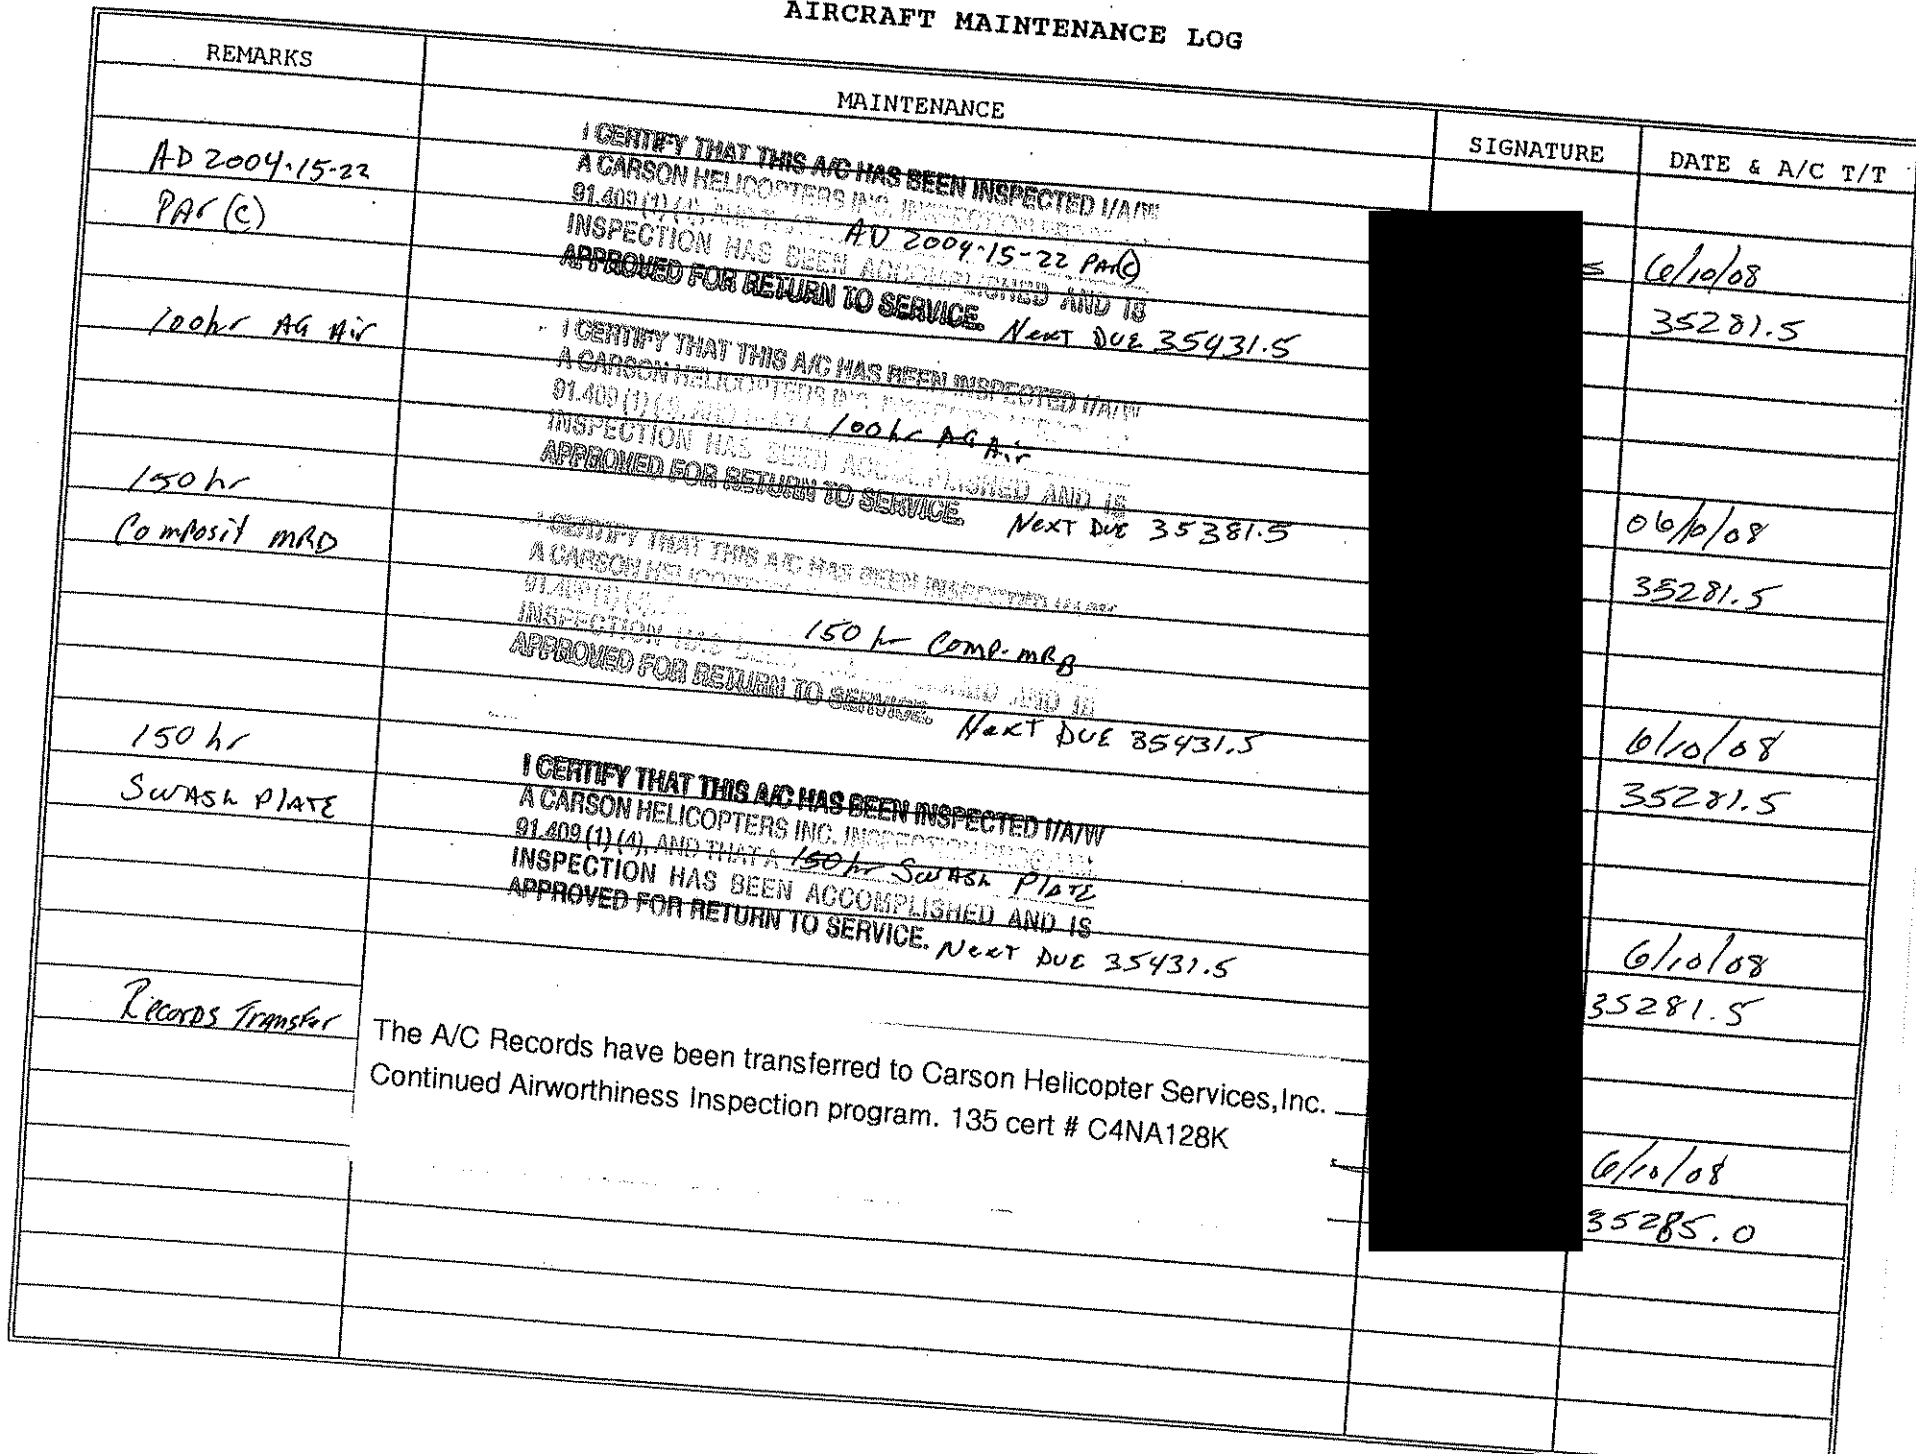 AIRCRAFT MAINTENANCE LOG
REMARKS
MAINTENANCE
SIGNATURE
DATE & A/C T/T
AD 2004-15-22
PAr (C)
I CERTIFY THAT THIS A/C HAS BEEN INSPECTED I/A/W
A CARSON HELICOPTERS INC. INSPECTION
91.409 (1) (4), AND THAT
AD 2004-15-22 PAr(C)
INSPECTION HAS BEEN ACCOMPLISHED AND IS
APPROVED FOR RETURN TO SERVICE. Next Due 35431.5
6/10/08
35281.5
100hr AG Air
I CERTIFY THAT THIS A/C HAS BEEN INSPECTED I/A/W
A CARSON HELICOPTERS INC.
91.409 (1) (4), AND
100hr AG Air
INSPECTION HAS BEEN ACCOMPLISHED AND IS
APPROVED FOR RETURN TO SERVICE. Next Due 35381.5
06/10/08
35281.5
150hr
Composit MRD
I CERTIFY THAT THIS A/C HAS BEEN INSPECTED I/A/W
A CARSON HELICOPTERS
91.409 (1) (4),
150 hr Comp. MRB
INSPECTION HAS BEEN AND IS
APPROVED FOR RETURN TO SERVICE. Next Due 35431.5
6/10/08
35281.5
150 hr
Swash Plate
I CERTIFY THAT THIS A/C HAS BEEN INSPECTED I/A/W
A CARSON HELICOPTERS INC. INSPECTION PROGRAM
91.409 (1) (4), AND THAT A 150 hr Swash Plate
INSPECTION HAS BEEN ACCOMPLISHED AND IS
APPROVED FOR RETURN TO SERVICE. Next Due 35431.5
6/10/08
35281.5
Records Transfer
The A/C Records have been transferred to Carson Helicopter Services,Inc.
Continued Airworthiness Inspection program. 135 cert # C4NA128K
6/10/08
35285.0